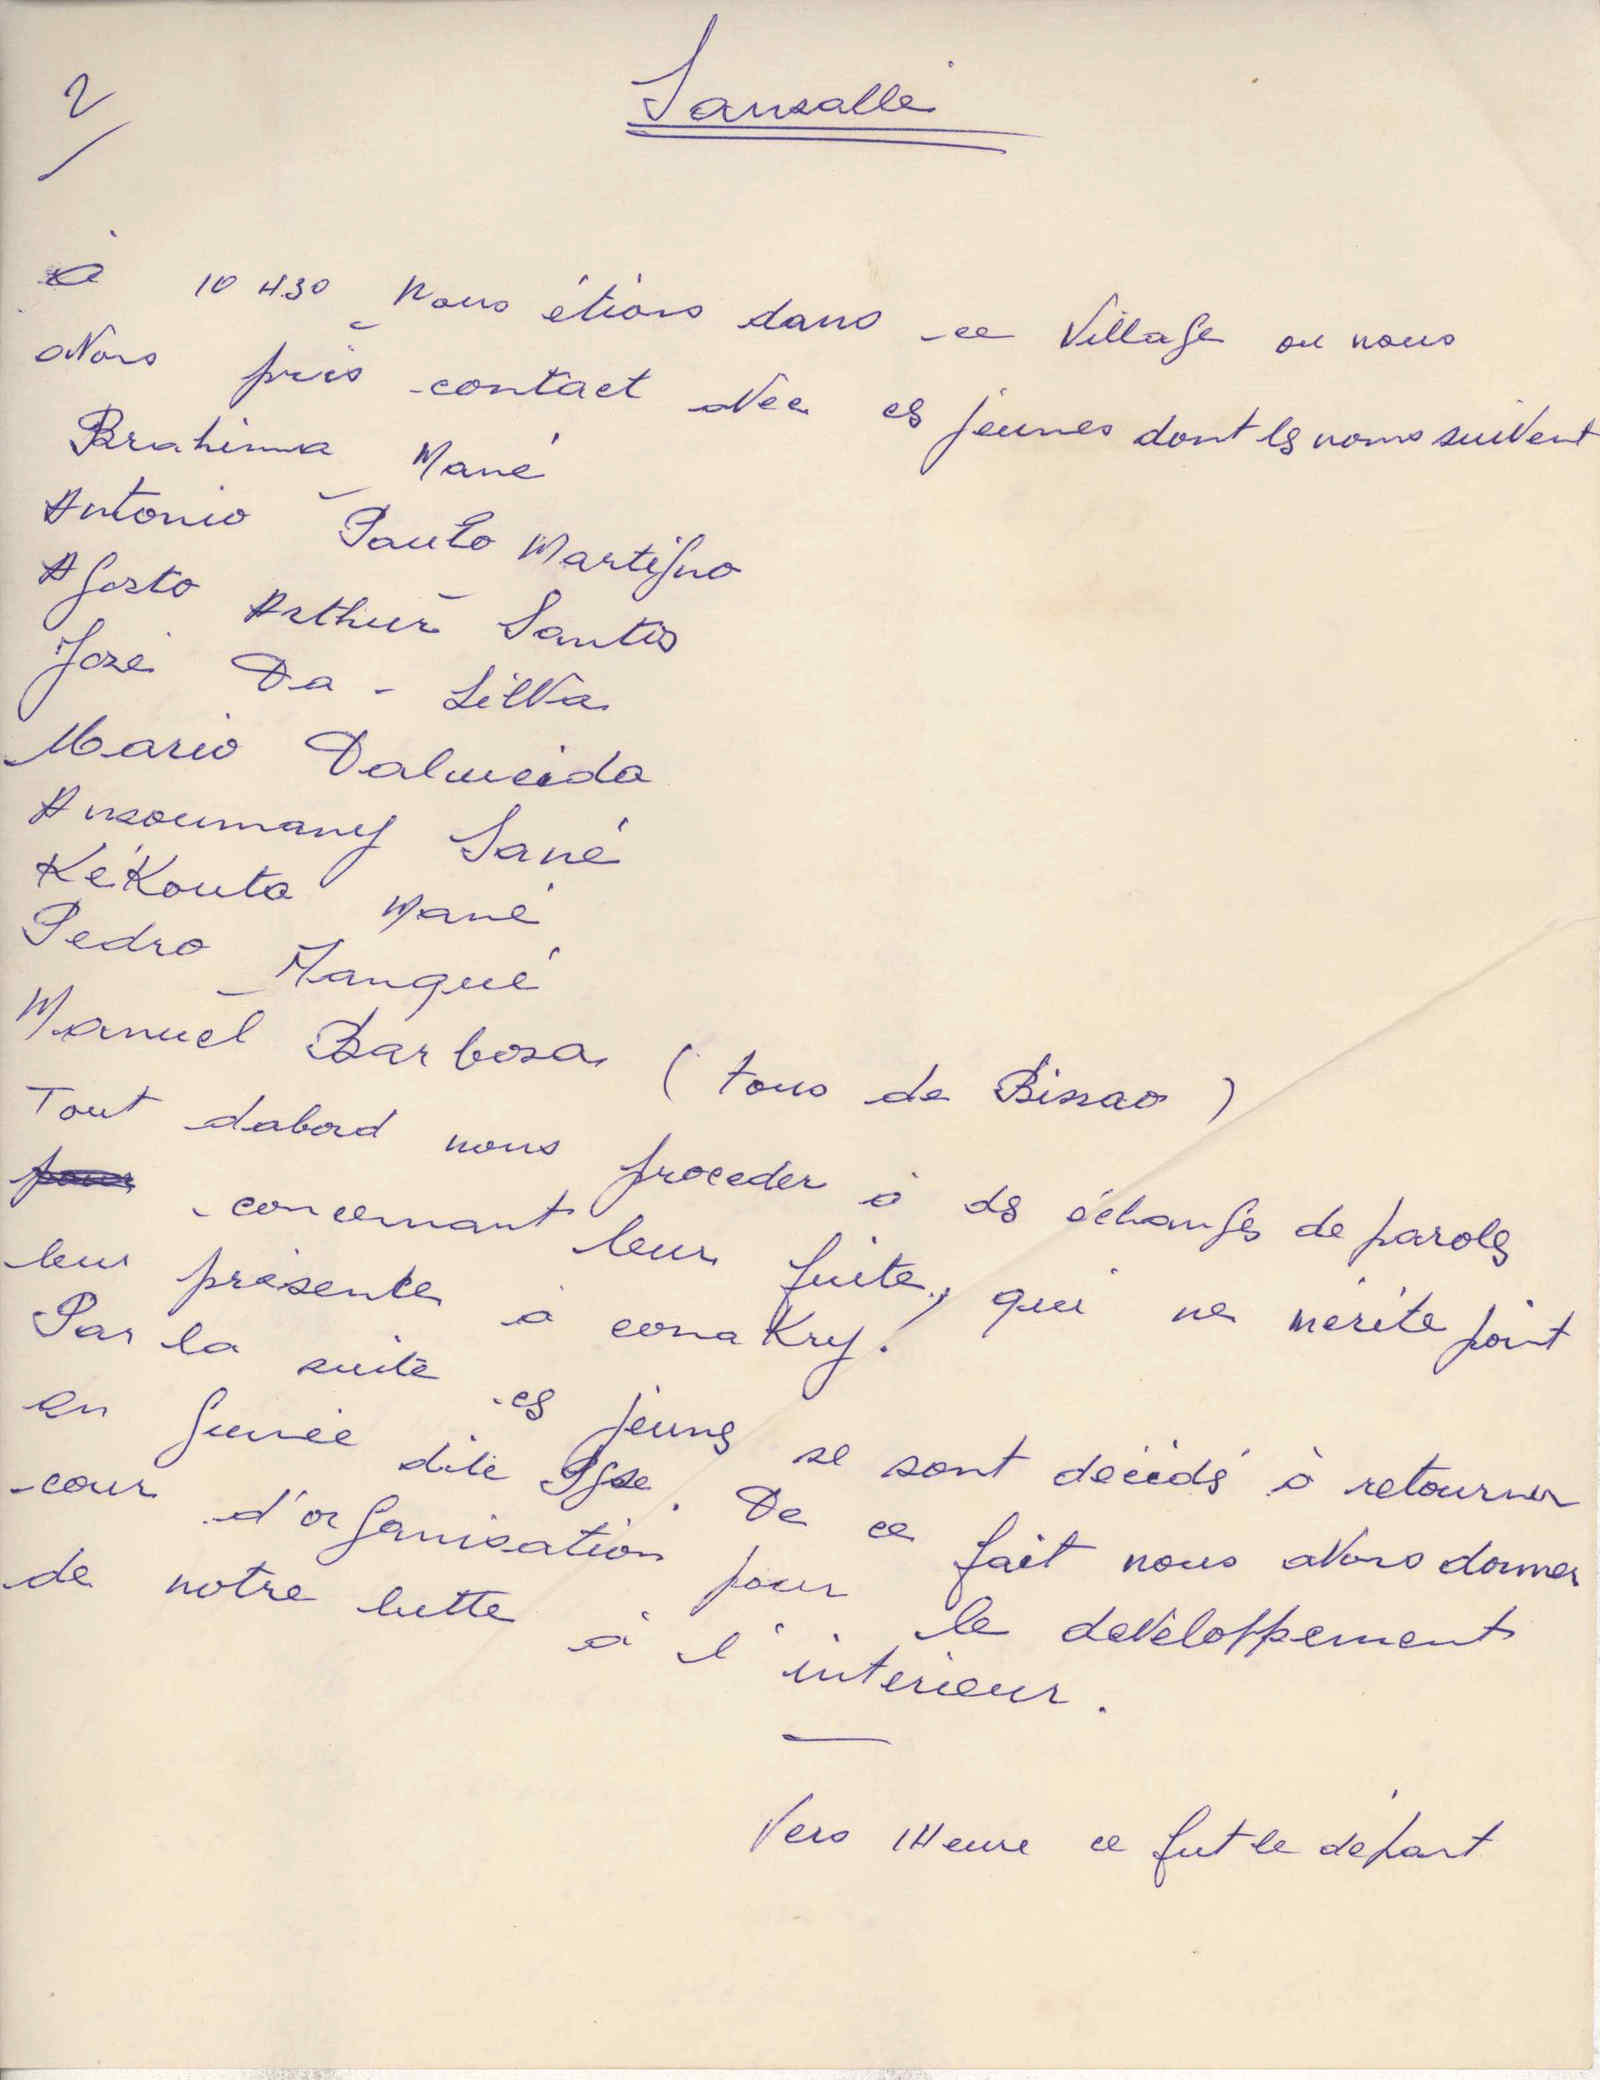 2
Sansalle
à 10 H30 Nous étions dans ce Village ou nous
avons pris contact avec ces jeunes dont les noms suivent
Brahima Mané
Antonio Paulo Martigno
Agosto Arthur Santos
José Da - Silva
Mario Dalmeida
Ansoumany Sané
KéKouta Mané
Pedro Mangué
Manuel Barbosa (tous de Bissao)
Tout dabord nous proceder à des échanges de paroles
pour concernant leur fuite, qui ne mérite point
leur présente à conaKry.
Par la suite ces jeunes se sont décidé à retourner
en Guinée dite Pgse. De ce fait nous avons donner
cour d'organisation pour le développement
de notre lutte à l'intérieur.
Vers 1Heure ce fut le départ